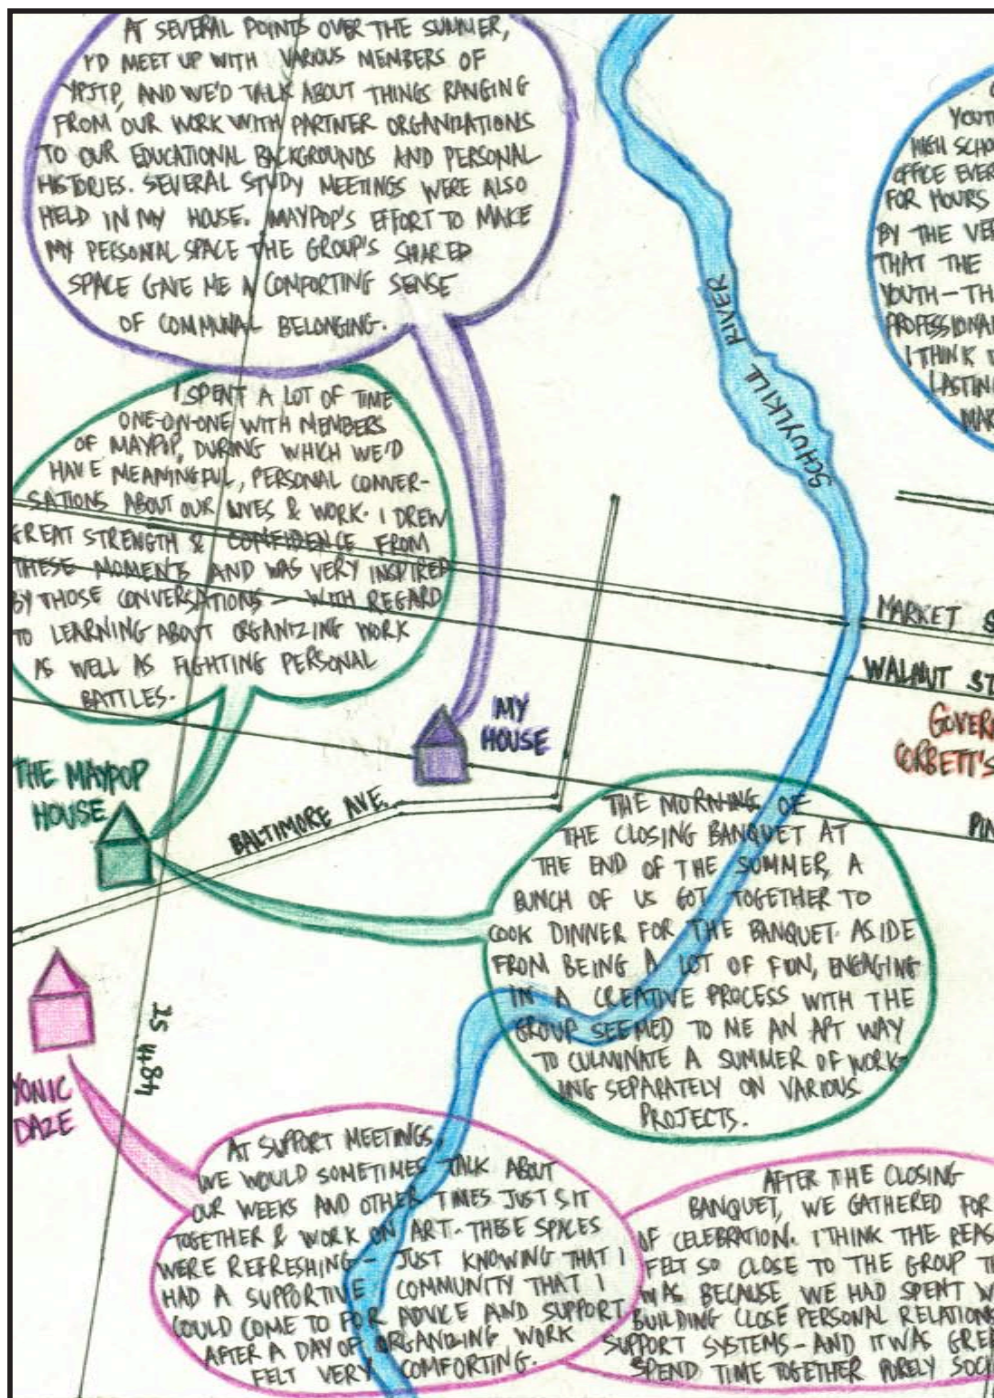 AT SEVERAL POINTS OVER THE SUMMER,
I'D MEET UP WITH VARIOUS MEMBERS OF
YPJTP, AND WE'D TALK ABOUT THINGS RANGING
FROM OUR WORK WITH PARTNER ORGANIZATIONS
TO OUR EDUCATIONAL BACKGROUNDS AND PERSONAL
HISTORIES. SEVERAL STUDY MEETINGS WERE ALSO
HELD IN MY HOUSE. MAYPOP'S EFFORT TO MAKE
MY PERSONAL SPACE THE GROUP'S SHARED
SPACE GAVE ME A COMFORTING SENSE
OF COMMUNAL BELONGING.
YOUTH
HIGH SCHO
OFFICE EVER
FOR HOURS
BY THE VER
THAT THE
YOUTH - TH
PROFESSIONA
I THINK
LASTIN
MAR
SCHUYLKILL RIVER
I SPENT A LOT OF TIME
ONE-ON-ONE WITH MEMBERS
OF MAYPOP, DURING WHICH WE'D
HAVE MEANINGFUL, PERSONAL CONVER-
SATIONS ABOUT OUR LIVES & WORK. I DREW
GREAT STRENGTH & CONFIDENCE FROM
THESE MOMENTS AND WAS VERY INSPIRED
BY THOSE CONVERSATIONS - WITH REGARD
TO LEARNING ABOUT ORGANIZING WORK
AS WELL AS FIGHTING PERSONAL
BATTLES.
MARKET S
WALNUT ST
GOVERN
CORBETT'S
PIN
MY
HOUSE
THE MAYPOP
HOUSE
BALTIMORE AVE.
THE MORNING OF
THE CLOSING BANQUET AT
THE END OF THE SUMMER, A
BUNCH OF US GOT TOGETHER TO
COOK DINNER FOR THE BANQUET. ASIDE
FROM BEING A LOT OF FUN, ENGAGING
IN A CREATIVE PROCESS WITH THE
GROUP SEEMED TO ME AN APT WAY
TO CULMINATE A SUMMER OF WORK-
ING SEPARATELY ON VARIOUS
PROJECTS.
YONIC
DAZE
AT SUPPORT MEETINGS,
WE WOULD SOMETIMES TALK ABOUT
OUR WEEKS AND OTHER TIMES JUST SIT
TOGETHER & WORK ON ART. THESE SPACES
WERE REFRESHING - JUST KNOWING THAT I
HAD A SUPPORTIVE COMMUNITY THAT I
COULD COME TO FOR ADVICE AND SUPPORT
AFTER A DAY OF ORGANIZING WORK
FELT VERY COMFORTING.
AFTER THE CLOSING
BANQUET, WE GATHERED FOR
OF CELEBRATION. I THINK THE REAS
FELT SO CLOSE TO THE GROUP TH
WAS BECAUSE WE HAD SPENT W
BUILDING CLOSE PERSONAL RELATIONS
SUPPORT SYSTEMS - AND IT WAS GREA
SPEND TIME TOGETHER PURELY SOCI